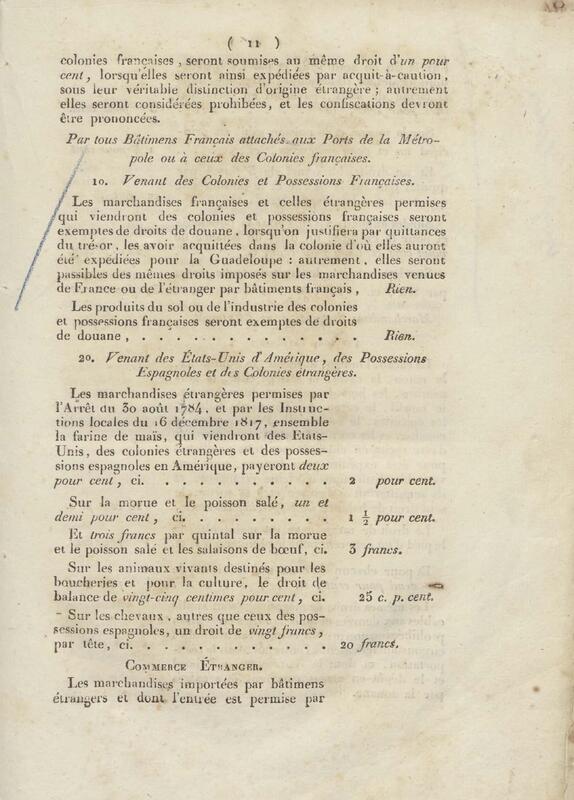 ( 11 )
colonies françaises, seront soumises au même droit d'un pour
cent, lorsqu'elles seront ainsi expédiées par acquit-à-caution,
sous leur véritable distinction d'origine étrangère ; autrement
elles seront considérées prohibées, et les confiscations devront
être prononcées.
Par tous Bâtimens Français attachés aux Ports de la Métro-
pole ou à ceux des Colonies françaises.
10. Venant des Colonies et Possessions Françaises.
Les marchandises françaises et celles étrangères permises
qui viendront des colonies et possessions françaises seront
exemptes de droits de douane, lorsqu'on justifiera par quittances
du trésor, les avoir acquittées dans la colonie d'où elles auront
été expédiées pour la Guadeloupe : autrement, elles seront
passibles des mêmes droits imposés sur les marchandises venues
de France ou de l'étranger par bâtiments français, Rien.
Les produits du sol ou de l'industrie des colonies
et possessions françaises seront exemptes de droits
de douane, . . . . . . . . . . . . . Rien.
20. Venant des États-Unis d'Amérique, des Possessions
Espagnoles et des Colonies étrangères.
Les marchandises étrangères permises par
l'Arrêt du 30 août 1784, et par les Instruc-
tions locales du 16 décembre 1817, ensemble
la farine de maïs, qui viendront des Etats-
Unis, des colonies étrangères et des posses-
sions espagnoles en Amérique, payeront deux
pour cent, ci. . . . . . . . . . . 2 pour cent.
Sur la morue et le poisson salé, un et
demi pour cent, ci. . . . . . . . . 1 ½ pour cent.
Et trois francs par quintal sur la morue
et le poisson salé et les salaisons de bœuf, ci. 3 francs.
Sur les animaux vivants destinés pour les
boucheries et pour la culture, le droit de
balance de vingt-cinq centimes pour cent, ci. 25 c. p. cent.
Sur les chevaux, autres que ceux des pos-
sessions espagnoles, un droit de vingt francs,
par tête, ci. . . . . . . . . . . . 20 francs.
COMMERCE ÉTRANGER.
Les marchandises importées par bâtimens
étrangers et dont l'entrée est permise par